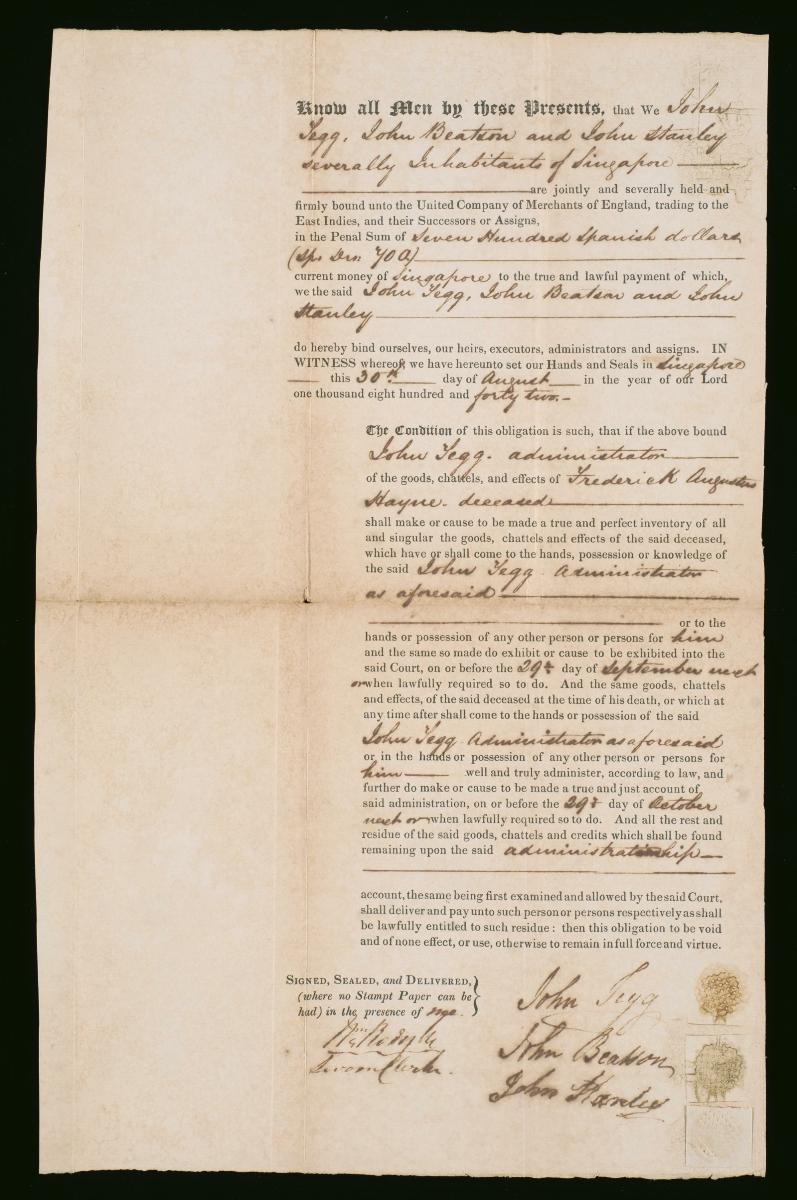 Know all Men by these Presents, that We John
Tegg, John Beatson and John Stanley
severally Inhabitants of Singapore
are jointly and severally held and
firmly bound unto the United Company of Merchants of England, trading to the
East Indies, and their Successors or Assigns,
in the Penal Sum of Seven Hundred Spanish dollars
(Sps Drs 700)
current money of Singapore to the true and lawful payment of which,
we the said John Tegg, John Beatson and John
Stanley
do hereby bind ourselves, our heirs, executors, administrators and assigns. IN
WITNESS whereof, we have hereunto set our Hands and Seals in Singapore
this 30th day of August in the year of our Lord
one thousand eight hundred and forty two.
The Condition of this obligation is such, that if the above bound
John Tegg. administrator
of the goods, chattels, and effects of Frederick Augustus
Hayne. deceased
shall make or cause to be made a true and perfect inventory of all
and singular the goods, chattels and effects of the said deceased,
which have or shall come to the hands, possession or knowledge of
the said John Tegg Administrator
as aforesaid
or to the
hands or possession of any other person or persons for him
and the same so made do exhibit or cause to be exhibited into the
said Court, on or before the 29th day of September next
or when lawfully required so to do. And the same goods, chattels
and effects, of the said deceased at the time of his death, or which at
any time after shall come to the hands or possession of the said
John Tegg Administrator as aforesaid
or in the hands or possession of any other person or persons for
him well and truly administer, according to law, and
further do make or cause to be made a true and just account of
said administration, on or before the 29th day of October
next or when lawfully required so to do. And all the rest and
residue of the said goods, chattels and credits which shall be found
remaining upon the said administrationship
account, the same being first examined and allowed by the said Court,
shall deliver and pay unto such person or persons respectively as shall
be lawfully entitled to such residue : then this obligation to be void
and of none effect, or use, otherwise to remain in full force and virtue.
SIGNED, SEALED, and DELIVERED,
(where no Stampt Paper can be
had) in the presence of me.
Wm
Sworn Clerk.
John Tegg
John Beatson
John Stanley